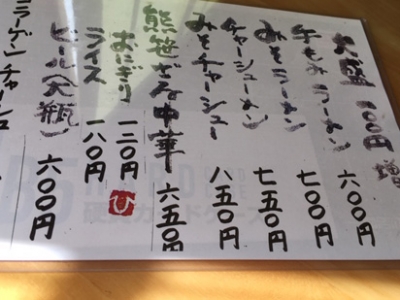 大盛 100円増
牛もみラーメン 六〇〇円
みそラーメン 七〇〇円
チャーシューメン 七五〇円
みそチャーシュー 八五〇円
熊笹ざる中華 六五〇円
おにぎり 一二〇円 ひ
ライス 一八〇円
ビール(大瓶) 六〇〇円
コラーゲンチャーシュ